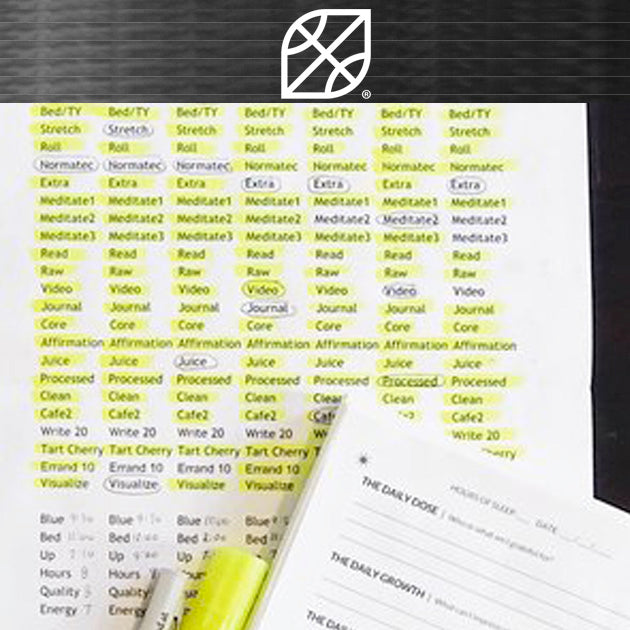 ®
Bed/TY Bed/TY Bed/TY Bed/TY Bed/TY Bed/TY Bed/TY
Stretch Stretch Stretch Stretch Stretch Stretch Stretch
Roll Roll Roll Roll Roll Roll Roll
Normatec Normatec Normatec Normatec Normatec Normatec Normatec
Extra Extra Extra Extra Extra Extra Extra
Meditate1 Meditate1 Meditate1 Meditate1 Meditate1 Meditate1 Meditate1
Meditate2 Meditate2 Meditate2 Meditate2 Meditate2 Meditate2 Meditate2
Meditate3 Meditate3 Meditate3 Meditate3 Meditate3 Meditate3 Meditate3
Read Read Read Read Read Read Read
Raw Raw Raw Raw Raw Raw Raw
Video Video Video Video Video Video Video
Journal Journal Journal Journal Journal Journal Journal
Core Core Core Core Core Core Core
Affirmation Affirmation Affirmation Affirmation Affirmation Affirmation Affirmation
Juice Juice Juice Juice Juice Juice Juice
Processed Processed Processed Processed Processed Processed Processed
Clean Clean Clean Clean Clean Clean Clean
Cafe2 Cafe2 Cafe2 Cafe2 Cafe2
Write 20 Write 20 Write 20 Write 20 Write 20
Tart Cherry Tart Cherry Tart Cherry Tart Cherry
Errand 10 Errand 10 Errand 10 Errand 10
Visualize Visualize Visualize Visualize
Blue Blue Blue Blue
Bed Bed Bed Bed
Up Up Up
Hours 8 Hours
Quality Quality
Energy 7 Energy
HOURS OF SLEEP DATE
THE DAILY DOSE
THE DAILY GROWTH
THE DAI